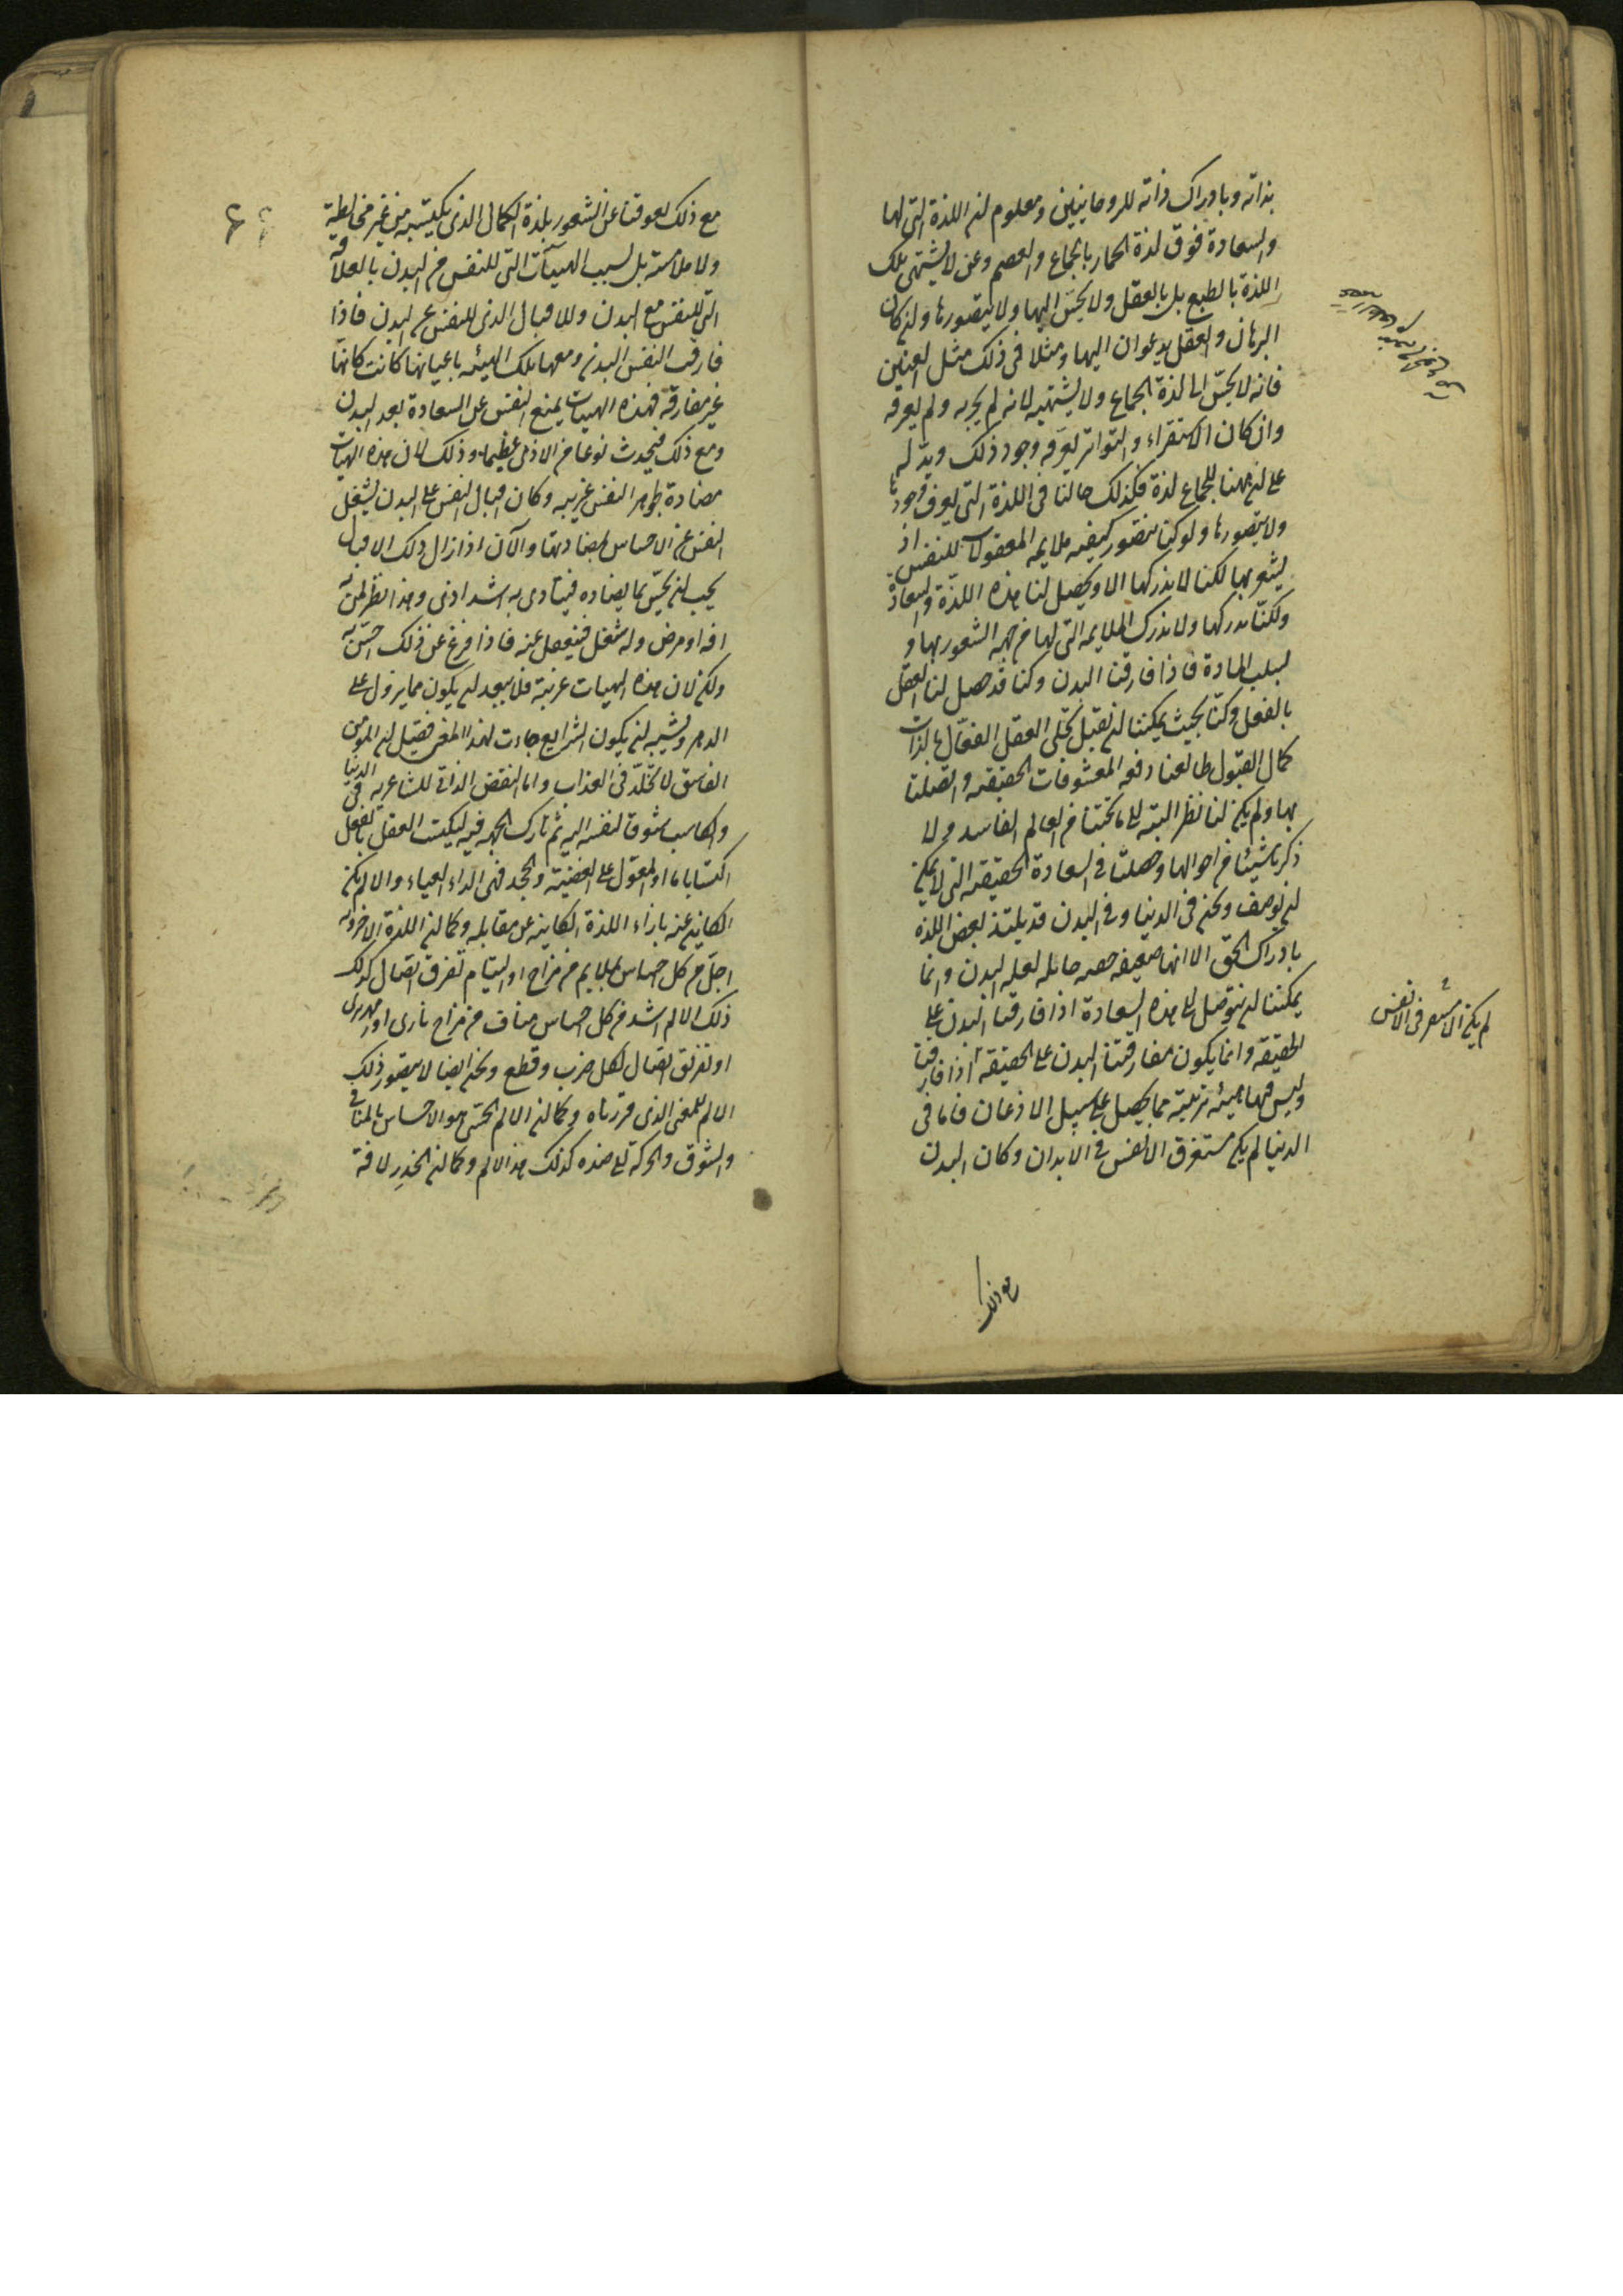 بذاته وبادراك ذاته للروحانيين ومعلوم ان اللذة التى لها
والسعادة فوق لذة الحمار بالجماع والقضم ونحن لا نشتهى تلك
اللذة بالطبع بل بالعقل ولا نحس اليها ولا نتصورها وان كان
البرهان والعقل يدعوان اليها ومثلا فى ذلك مثل العنين
فانه لا يحسّ الى لذة الجماع ولا يشتهيه لانه لم يجربه ولم يعرفه
وان كان الاستقراء والتواتر يعرفه وجود ذلك ويدله
على ان ههنا للجماع لذة فكذلك حالنا فى اللذة التى نعرف وجودها
ولا نتصورها ولو كنا نتصور كيفيه ملايمه المعقولات للنفس اذ
يشعر بها لكنا لا ندركها الا ويحصل لنا هذه اللذّة والسعادة
ولكنّا ندركها ولا ندرك الملايمه التى لها من جهه الشعور بها و
لسبب المادة فاذا فارقنا البدن وكنا قد حصل لنا العقل
بالفعل وكنّا بحيث يمكننا ان نقبل تجلى العقل الفعّال بالذات
كمال القبول طالعنا دفعه المعشوقات الحقيقيه واتصلنا
بها ولم يكن لنا نظر البته الى ما تحتنا من العالم الفاسد ولا
ذكرنا شيئا من احوالها وحصلنا فى السعادة الحقيقيه التى لا يمكن
ان توصف ونحن فى الدنيا وفى البدن قد يلتذ بعض اللذه
بادراك الحق الا انها ضعيفه خفيه حايله لعله البدن وانما
يمكننا ان نتوصل الى هذه السعادة اذا فارقنا البدن على
الحقيقه وانما يكون مفارقتنا البدن على الحقيقه اذا فارقنا
وليس فيها هيئه بدنيته مما يحصل على سبيل الاذعان فاما فى
الدنيا لم يكن مستغرق الانفس فى الابدان وكان البدن
لم يكن الا نفس فى الانفس
مع ذلك
مع ذلك يعوقنا عن الشعور بلذة الكمال الذى نكتسبه من غير مخالطة
ولا ملامسته بل لسبب الهيئآت التى للنفس من البدن بالعلاقه
التى للنفس مع البدن وللاقبال الذى للنفس على البدن فاذا
فارقت النفس البدن ومعها تلك الهيئه باعيانها كانت كانها
غير مفارقه فهذه الهيئات يمنع النفس عن السعادة بعد البدن
ومع ذلك فيحدث نوعا من الاذى عظيما وذلك لان هذه الهيئات
مضادة لجوهر النفس غريبه وكان اقبال النفس على البدن يشغل
النفس عن الاحساس بمضادتها والآن اذا زال ذلك الاقبال
يجب ان يحسّ بما يضاده فيتاذى به اشد اذى وهذا نظير من به
افه او مرض وله شغل فيغفل عنه فاذا فرغ عن ذلك احسّ به
ولكن لان هذه الهيئات غريبة فلا يبعد ان يكون مما يزول على
الدهر ويشبه ان يكون الشرايع جاءت لهذا المعنى فقيل ان المومن
الفاسق لا يخلّد فى العذاب واما النقص الذاتى للشاعر به فى الدنيا
والكاسب شوقا لنفسه اليه ثم تارك الجهد فيه ليكتسب العقل بالفعل
اكتسابا ما او المعوّل على العصبية والجحد فهى الداء العياء والالم
الكاين عنه بازاء اللذة الكاينه عن مقابله وكما ان اللذة الاخروية
اجلّ من كل احساس بملايم من مزاج او التيام تفرق اتصال كذلك
ذلك الالم اشد من كل احساس مناف من مزاج نارى او زمهريرى
او تفرق اتصال بكل ضرب وقطع ونحن ايضا لا نتصور ذلك
الالم للمعنى الذى قررناه وكما ان الالم الحسّى هو الاحساس بالمنافى
والشوق والحركة الى ضده كذلك هذا الالم وكما ان الخدر لافة